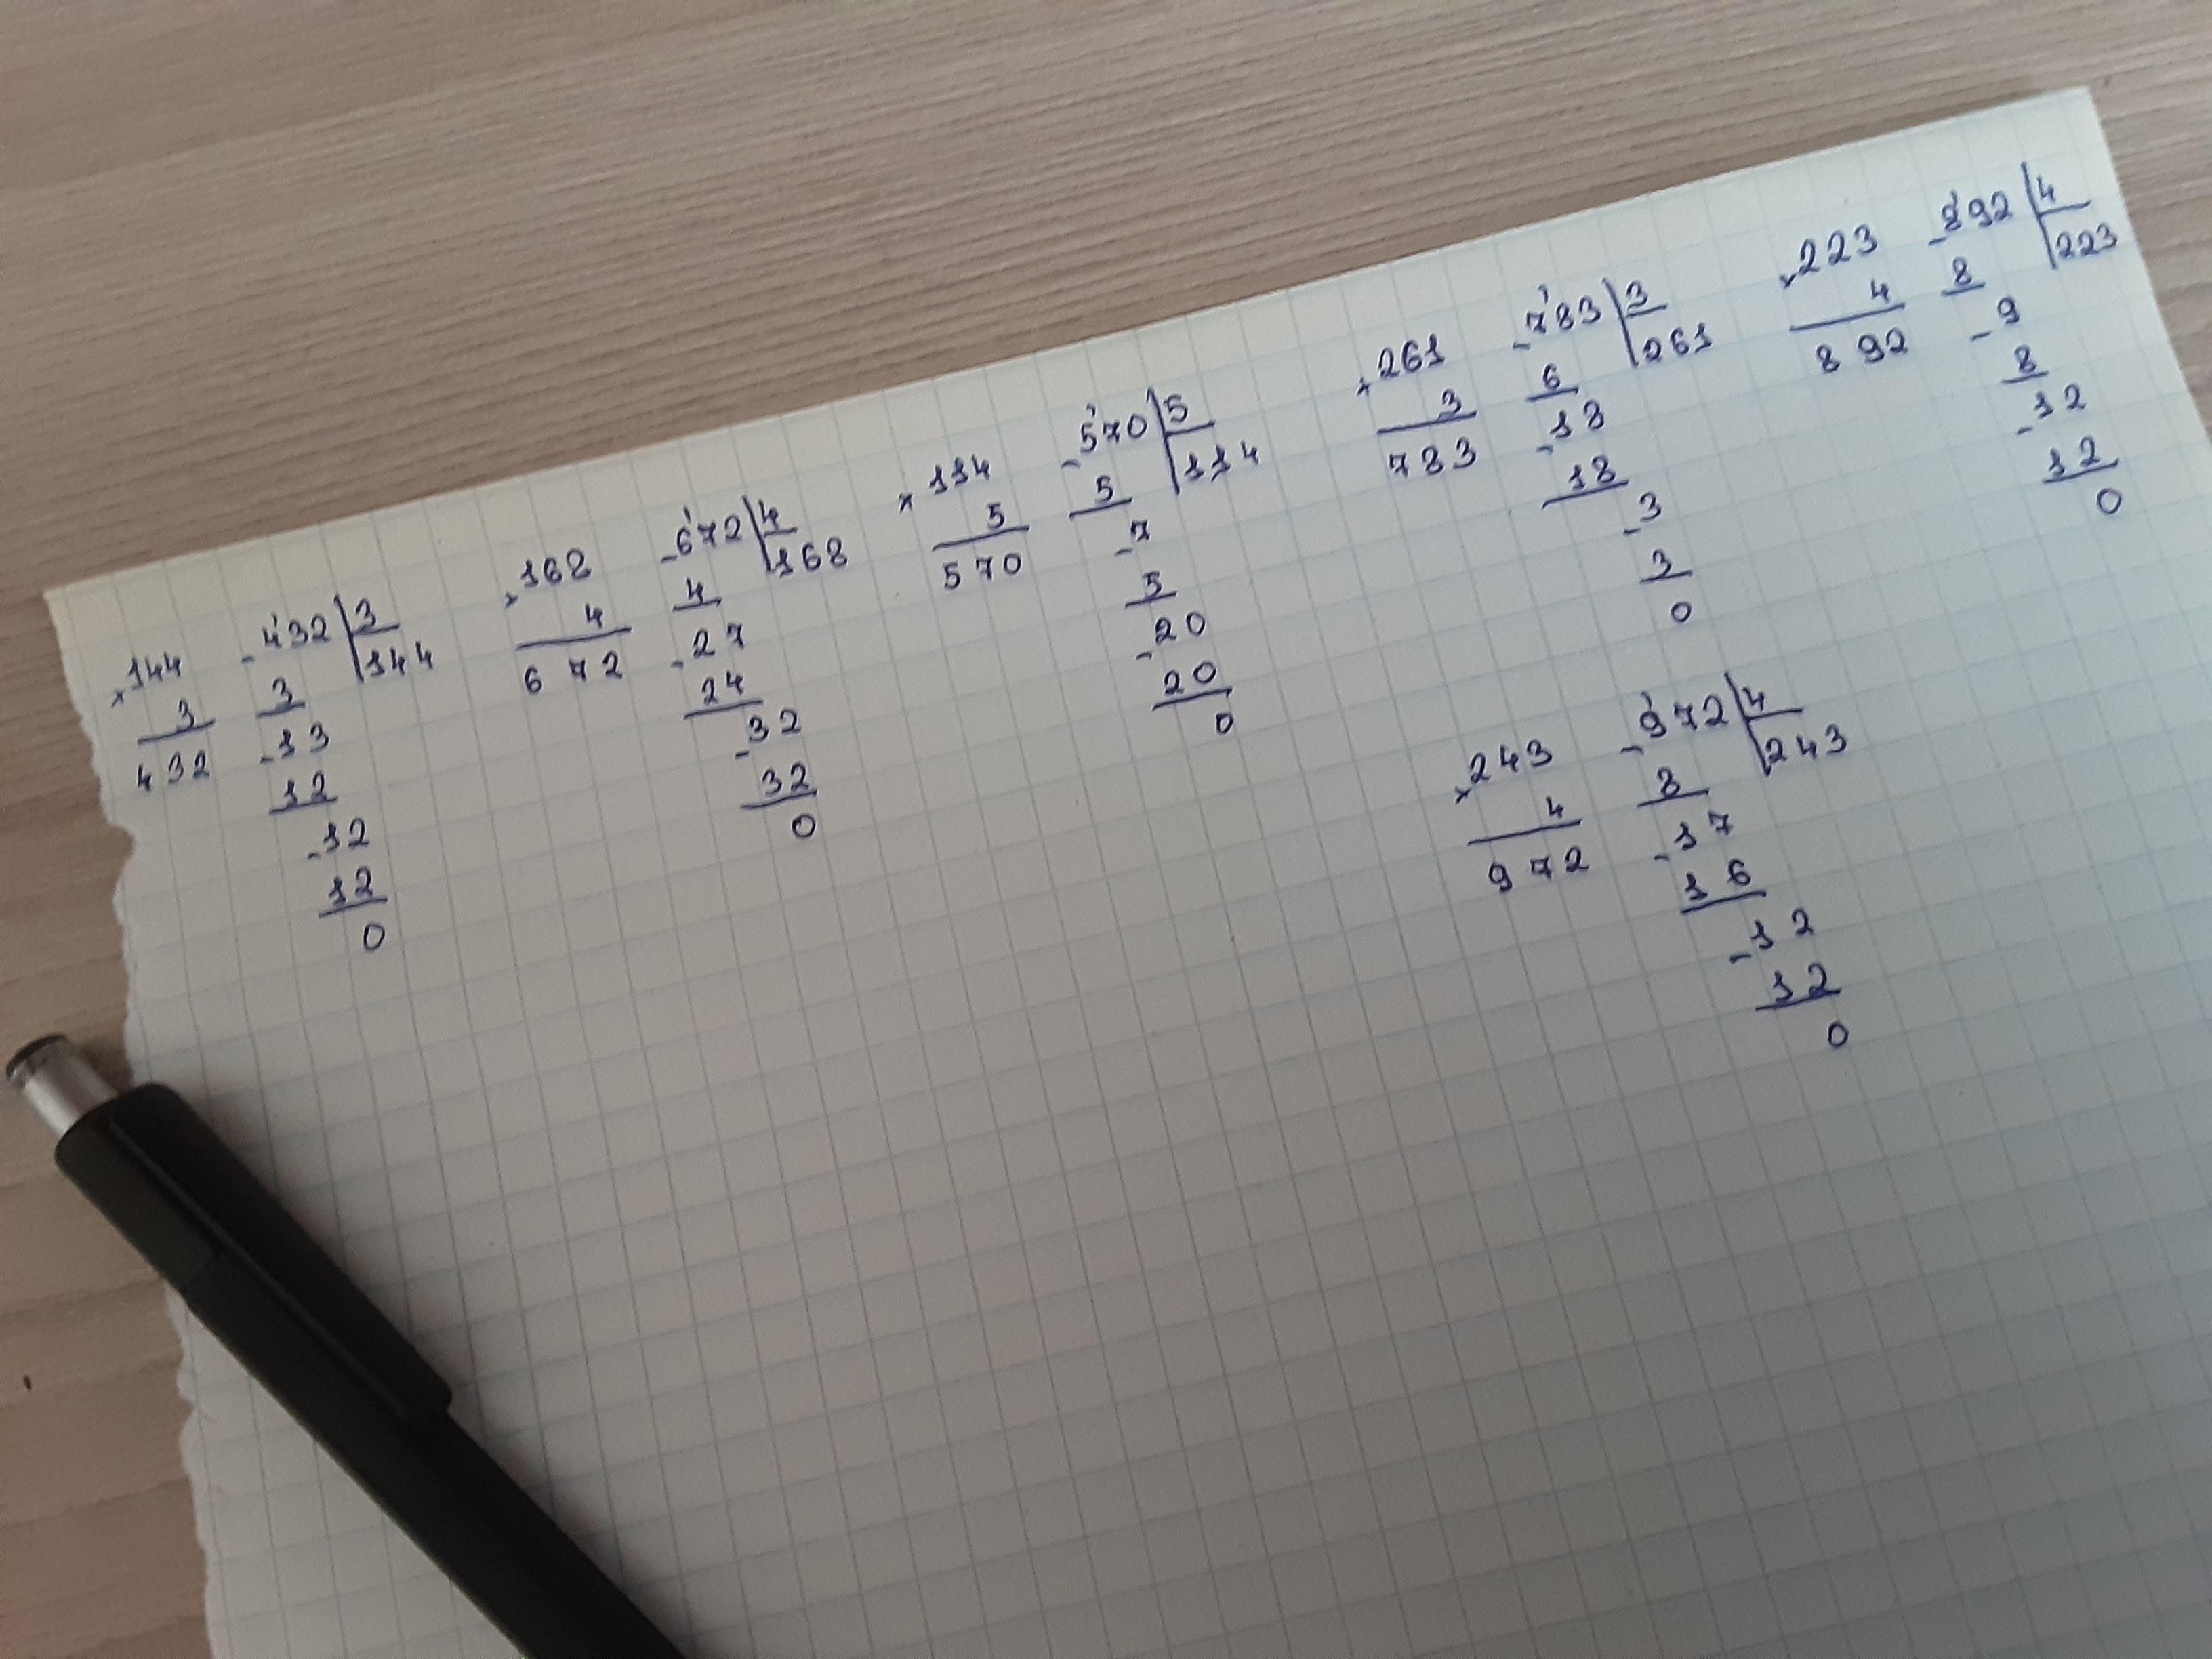 ×144
3
432
-4'32 | 3
3 | 144
-13
12
-12
12
0
×168
4
672
-6'72 | 4
4 | 168
-27
24
-32
32
0
×114
5
570
-5'70 | 5
5 | 114
-7
5
-20
20
0
×261
3
783
-7'83 | 3
6 | 261
-18
18
-3
3
0
×223
4
892
-8'92 | 4
8 | 223
-9
8
-12
12
0
×243
4
972
-9'72 | 4
8 | 243
-17
16
-12
12
0